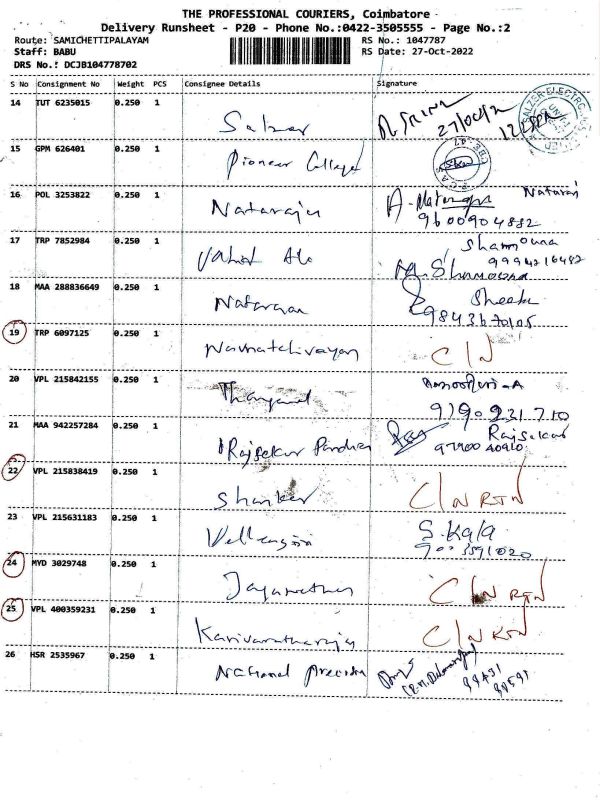 THE PROFESSIONAL COURIERS, Coimbatore
Delivery Runsheet - P20 - Phone No.:0422-3505555 - Page No.:2
Route: SAMICHETTIPALAYAM RS No.: 1047787
Staff: BABU RS Date: 27-Oct-2022
DRS No.: DCJB104778702
S No Consignment No Weight PCS Consignee Details Signature
14 TUT 6235015 0.250 1 Salzer 27/10/22
15 GPM 626401 0.250 1 Pioneer College
16 POL 3253822 0.250 1 Nataraju A. Nataraju Nataraj
9600904882
17 TRP 7852984 0.250 1 Vahid Ali Shamouna
9994216482
M. Shamouna
18 MAA 288836649 0.250 1 Natarajan Sheela
9843670105
19 TRP 6097125 0.250 1 C/N
20 VPL 215842155 0.250 1 Thangavel
9190 231 710
21 MAA 942257284 0.250 1 Rajsekur Pandian Rajsekar
97900 40910
22 VPL 215838419 0.250 1 Shanker C/N RTN
23 VPL 215631183 0.250 1 Vellangiri S. Kala
24 MYD 3029748 0.250 1 C/N RTN
25 VPL 400359231 0.250 1 Karivaratharaju C/N RTN
26 HSR 2535967 0.250 1 National Precision
99431